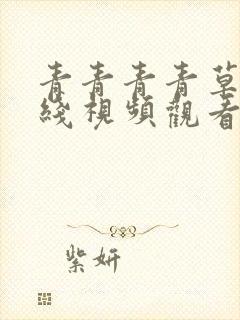 青青青青草
綫視頻觀看
紫妍